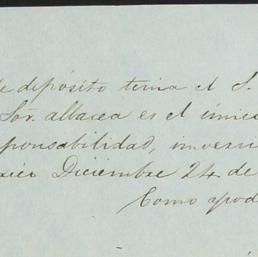 de depósito tenia el S.
Sor. albacea es el único
sponsabilidad, inversi
xico Diciembre 24 de
Como apod